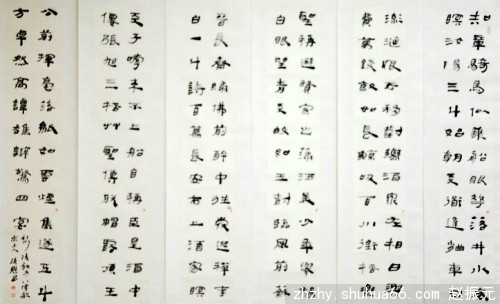 知章騎馬似乘船眼花落井水底
眠汝陽三斗始朝天道逢麴車口
流涎恨不移封向酒泉左相日興
費萬錢飲如長鯨吸百川銜杯樂
聖稱避賢宗之瀟灑美少年舉觴
白眼望青天皎如玉樹臨風前蘇
晉長齋繡佛前醉中往往愛逃禪李
白一斗詩百篇長安市上酒家眠
天子呼來不上船自稱臣是酒中
仙張旭三杯草聖傳脫帽露頂王
公前揮毫落紙如雲煙焦遂五斗
方卓然高談雄辯驚四筵
zhzhy.shuhuaco.com 赵振元